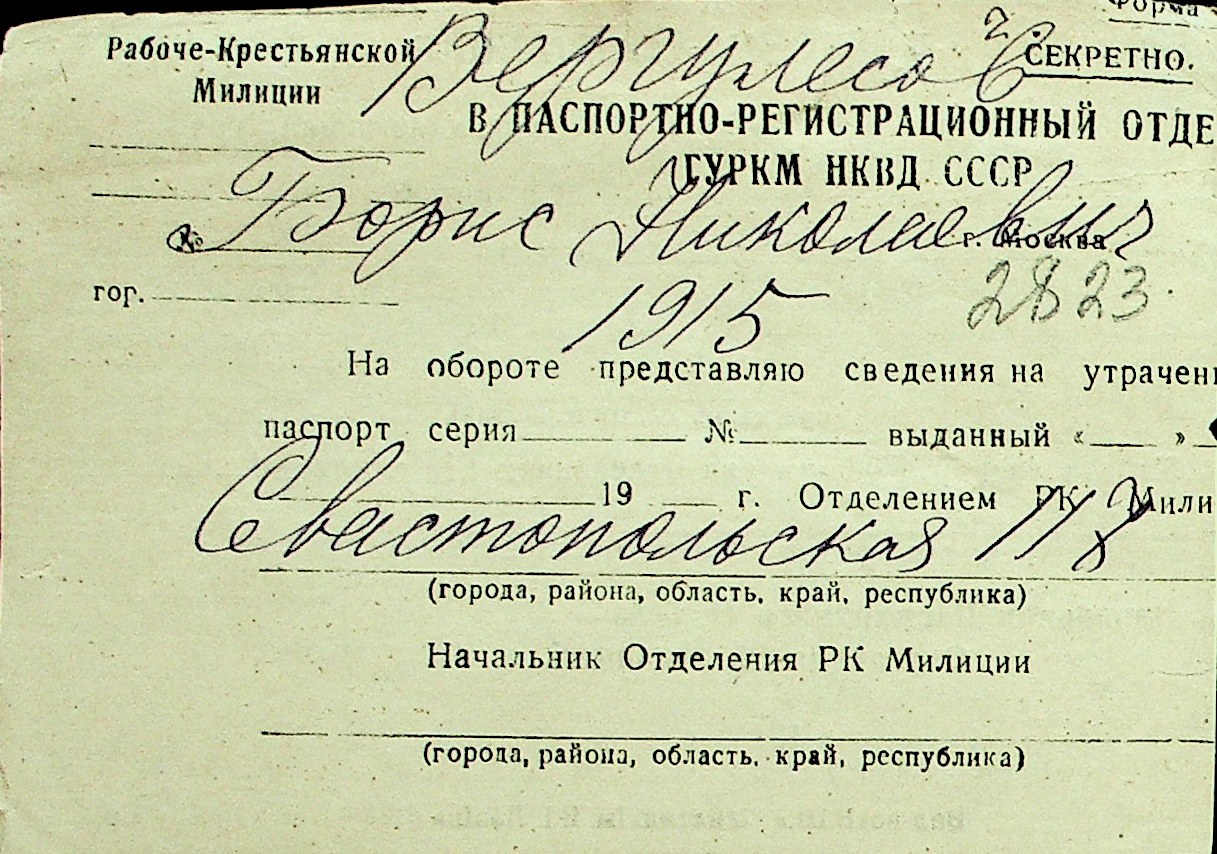 Форма
Рабоче-Крестьянской
Милиции
СЕКРЕТНО.
Вергулесов
В ПАСПОРТНО-РЕГИСТРАЦИОННЫЙ ОТДЕ
ГУРКМ НКВД СССР
№
Борис Николаевич
г. Москва
гор.
1915
2823
На обороте представляю сведения на утрачен
паспорт серия № выданный « »
19 г. Отделением РК Мили
Севастопольская 11
(города, района, область, край, республика)
Начальник Отделения РК Милиции
(города, района, область, край, республика)